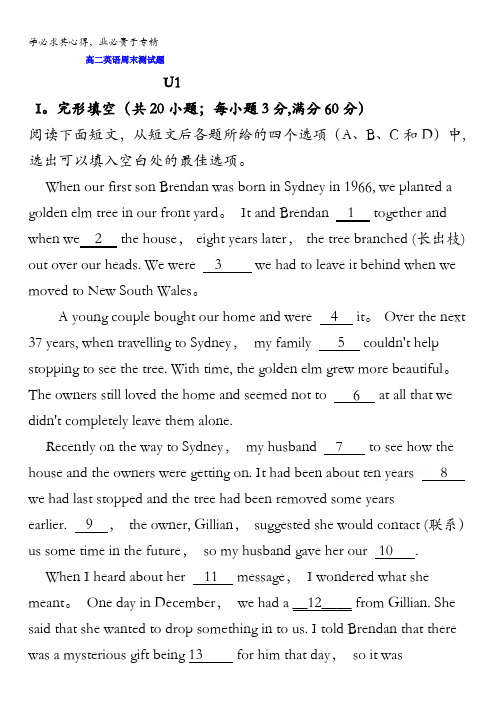 学必求其心得，业必贵于专精
高二英语周末测试题
U1
I。完形填空（共20小题；每小题3分,满分60分）
阅读下面短文，从短文后各题所给的四个选项（A、B、C和D）中，
选出可以填入空白处的最佳选项。
When our first son Brendan was born in Sydney in 1966, we planted a
golden elm tree in our front yard。 It and Brendan 1 together and
when we 2 the house， eight years later， the tree branched (长出枝)
out over our heads. We were 3 we had to leave it behind when we
moved to New South Wales。
A young couple bought our home and were 4 it。 Over the next
37 years, when travelling to Sydney， my family 5 couldn't help
stopping to see the tree. With time, the golden elm grew more beautiful。
The owners still loved the home and seemed not to 6 at all that we
didn't completely leave them alone.
Recently on the way to Sydney， my husband 7 to see how the
house and the owners were getting on. It had been about ten years 8
we had last stopped and the tree had been removed some years
earlier. 9 ， the owner, Gillian， suggested she would contact (联系）
us some time in the future， so my husband gave her our 10 .
When I heard about her 11 message， I wondered what she
meant。 One day in December， we had a __12____ from Gillian. She
said that she wanted to drop something in to us. I told Brendan that there
was a mysterious gift being 13 for him that day， so it was